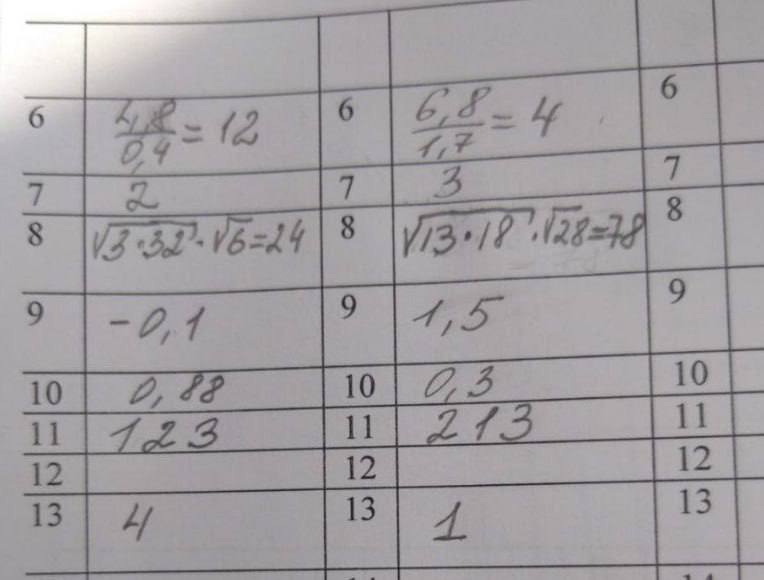 6 4,8/0,4 = 12 6 6,8/1,7 = 4 6
7 2 7 3 7
8 √(3·32)·√6=24 8 √(13·18)·√28=78 8
9 -0,1 9 1,5 9
10 0,88 10 0,3 10
11 123 11 213 11
12 12 12
13 4 13 1 13